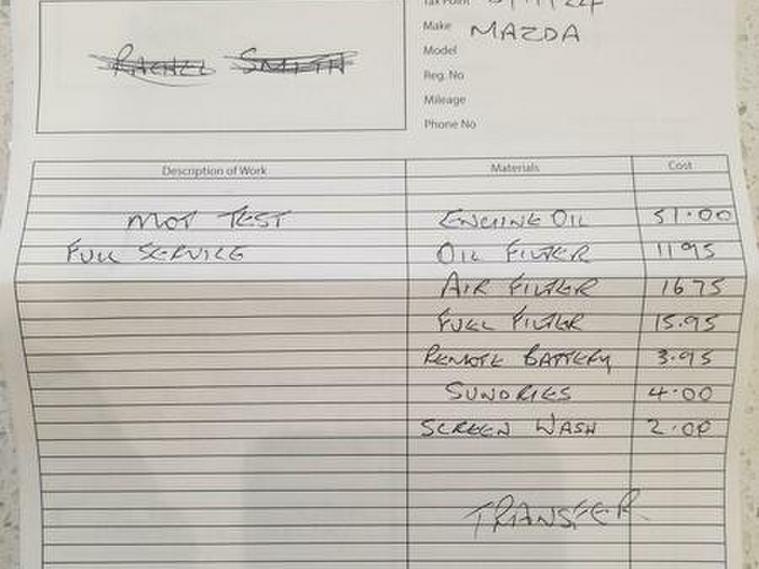 Tax Point
Make MAZDA
Model
RACHEL SMITH
Reg. No
Mileage
Phone No
Description of Work Materials Cost
MOT TEST ENGINE OIL 51.00
FULL SERVICE OIL FILTER 11 95
AIR FILTER 16 75
FUEL FILTER 15.95
REMOTE BATTERY 3.95
SUNDRIES 4.00
SCREEN WASH 2.00
TRANSFER